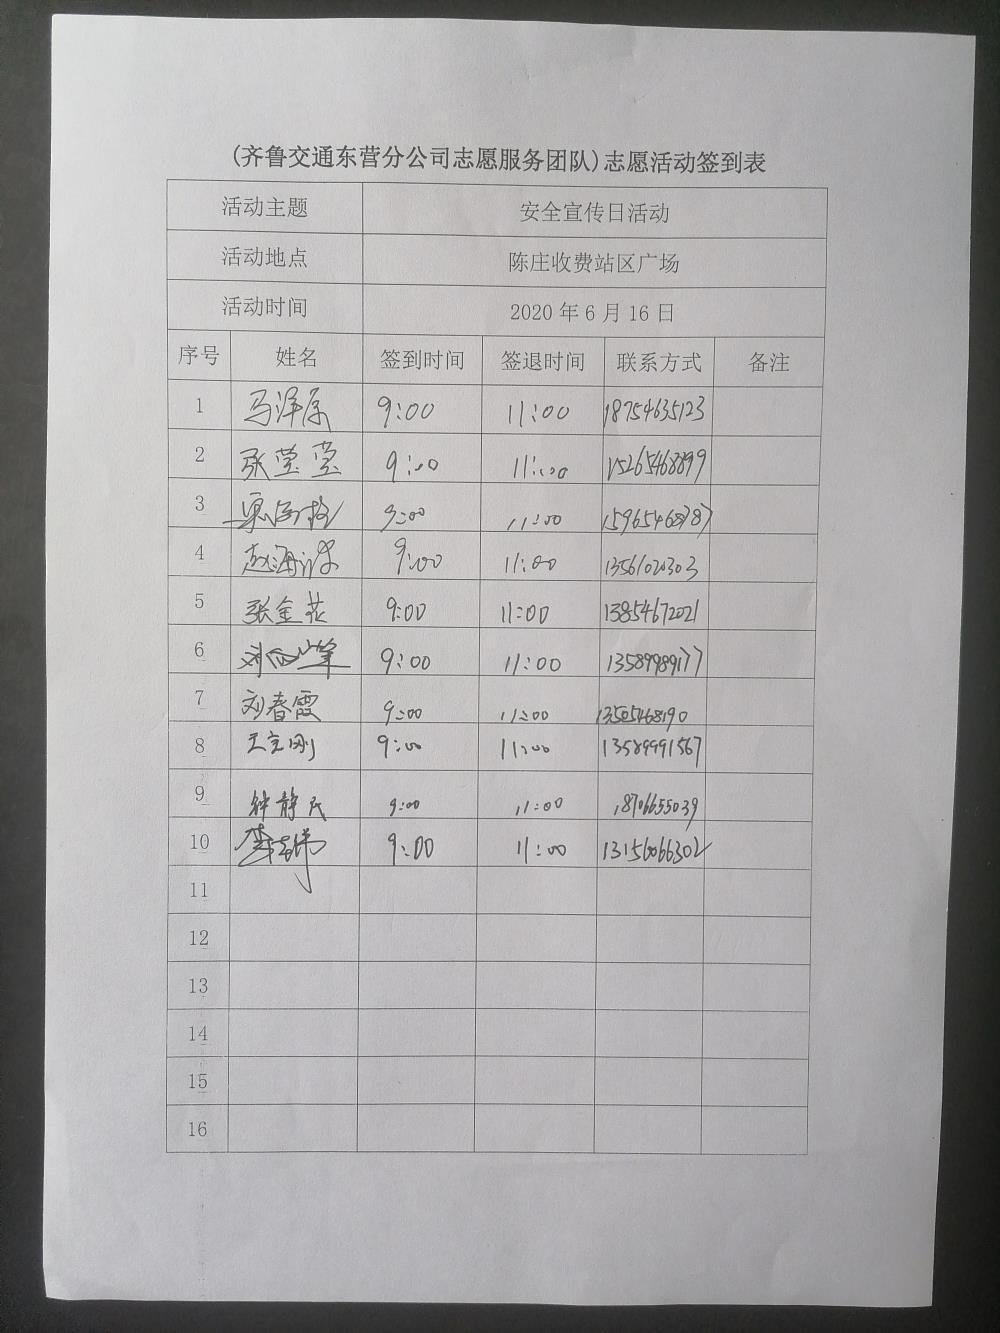 (齐鲁交通东营分公司志愿服务团队)志愿活动签到表
活动主题 安全宣传日活动
活动地点 陈庄收费站区广场
活动时间 2020年6月16日
序号 姓名 签到时间 签退时间 联系方式 备注
1 马泽原 9:00 11:00 18754635123
2 张莹莹 9:00 11:00 15265468899
3 9:00 11:00 15965468787
4 赵海洋 9:00 11:00 13561020303
5 张金花 9:00 11:00 13854672021
6 9:00 11:00 13589989177
7 刘春霞 9:00 11:00 13505468190
8 王志刚 9:00 11:00 13589991567
9 钟静民 9:00 11:00 18706655039
10 9:00 11:00 13156066302
11
12
13
14
15
16